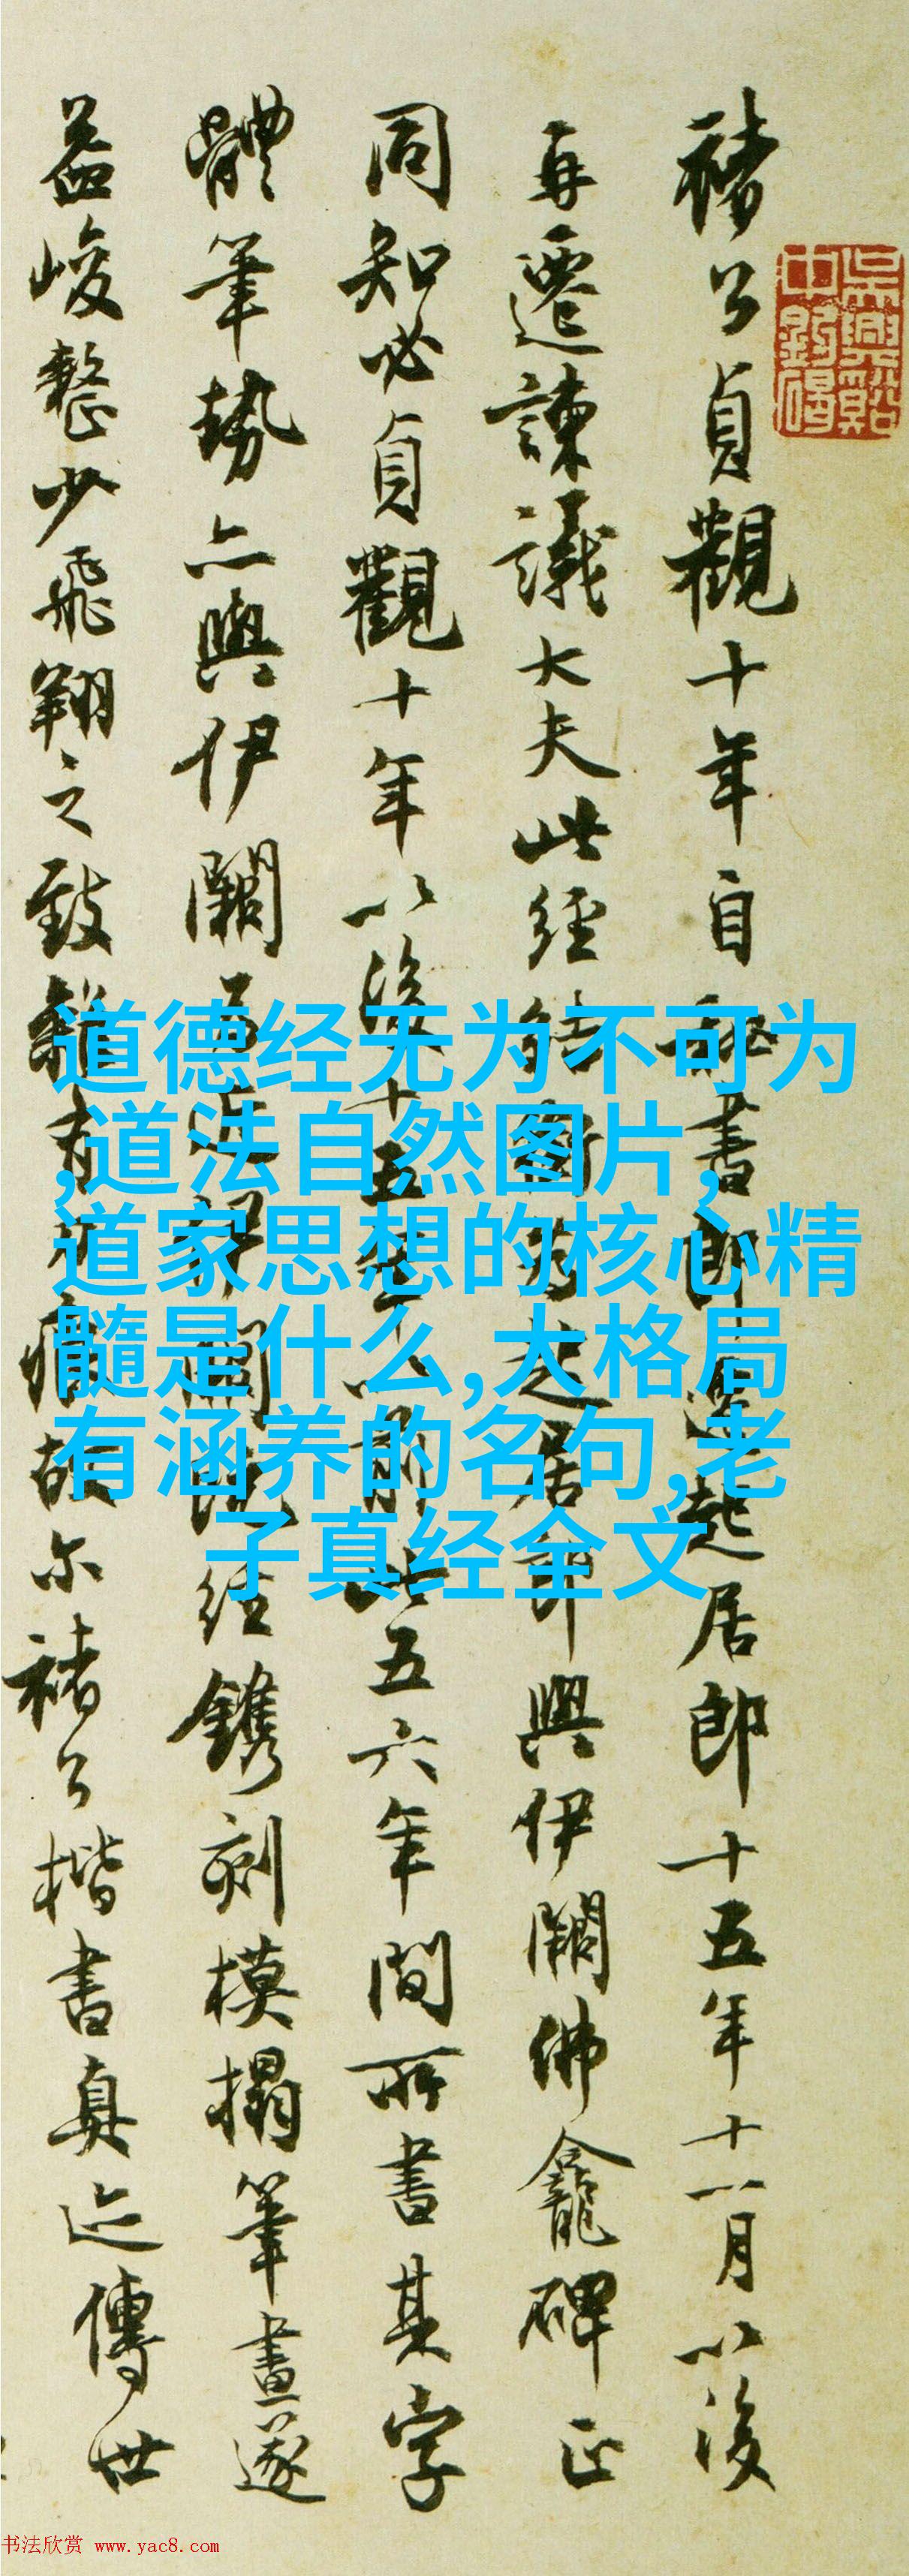 褚公貞觀十年自祕書郎遷起居郎十五年十一月以後
再遷諫議大夫此經結銜為起居郎與伊闕佛龕碑正
同知必貞觀十年以後十五年以前此五六年間所書其字
體筆勢亦與伊闕伊闕既經鐫刻模搨筆畫遂
益峻整少飛翔之致痕故尔褚公楷書真迹傳世
道德经无为不可为
,道法自然图片,
道家思想的核心精
髓是什么,大格局
有涵养的名句,老
子真经全文
书法欣赏 www.yac8.com